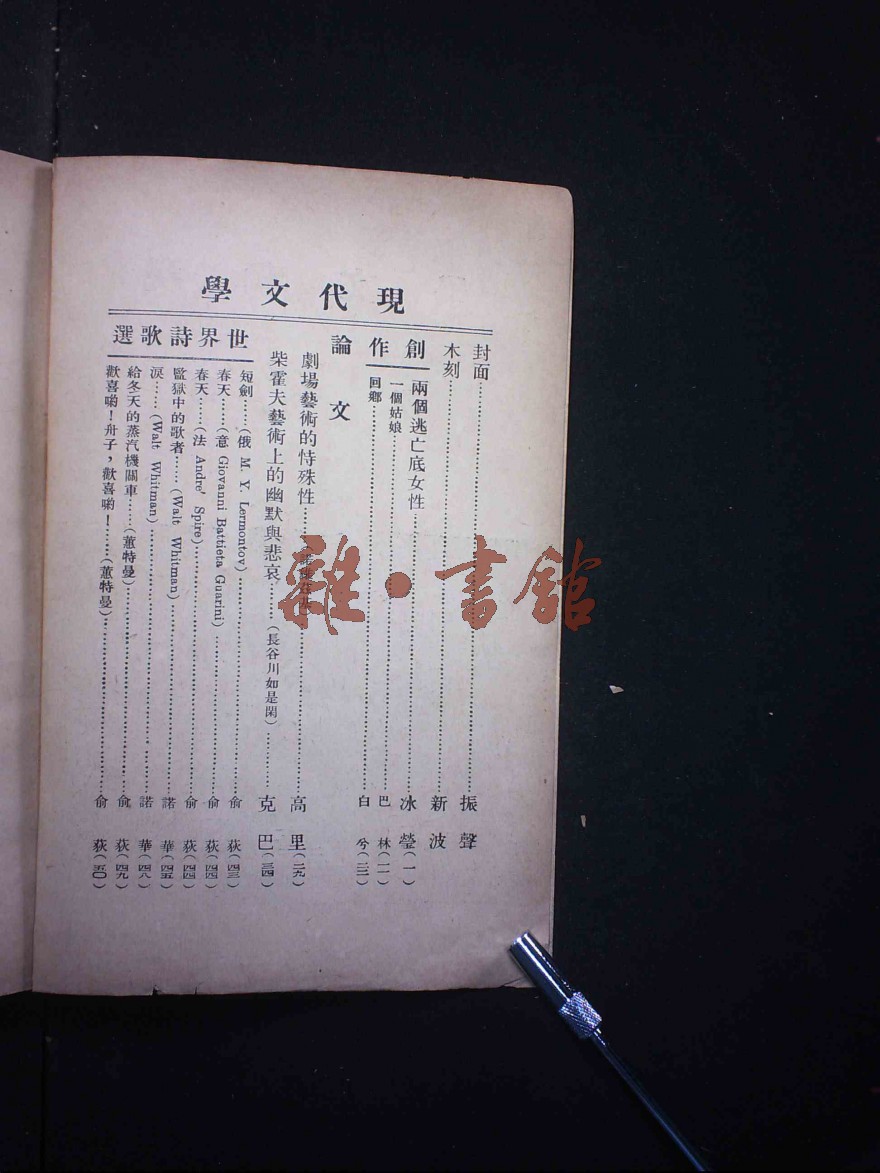 現代文學
封面……振聲
木刻……新波
創作
兩個逃亡底女性……冰瑩(一)
一個姑娘……巴林(一一)
回鄉……白兮(二二)
論文
劇場藝術的特殊性……高里(二九)
柴霍夫藝術上的幽默與悲哀……(長谷川如是閑)……克巴(三四)
世界詩歌選
短劍……(俄 M. Y. Lermontov)……俞荻(四三)
春天……(意 Giovanni Battieta Guarini)……俞荻(四四)
春天……(法 Andre' Spire)……俞荻(四四)
監獄中的歌者……(Walt Whitman)……諾華(四五)
淚……(Walt Whitman)……諾華(四八)
給冬天的蒸汽機關車……(蕙特曼)……俞荻(四九)
歡喜喲!舟子,歡喜喲!……(蕙特曼)……俞荻(五〇)
雜·書館